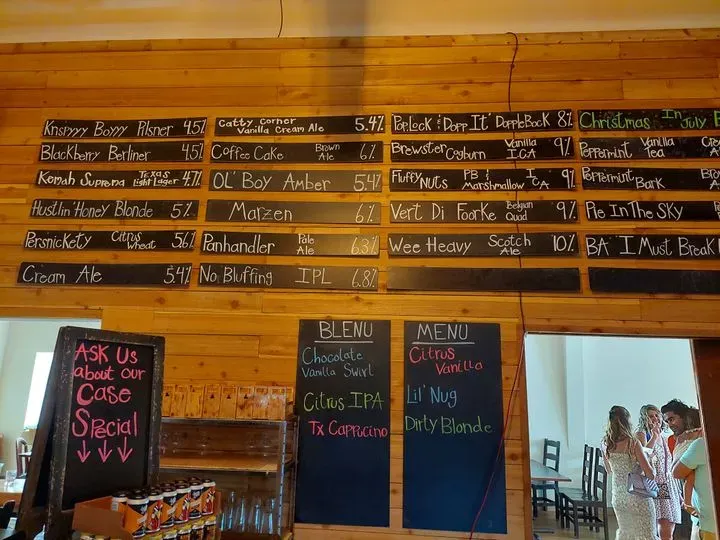 Knspyyy Boyyy Pilsner 4.5%
BlackBerry Berliner 4.5%
Komah Suprema Texas Light Lager 4.7%
Hustlin' Honey Blonde 5%
Persnickety Citrus Wheat 5.6%
Cream Ale 5.4%
Catty Corner Vanilla Cream Ale 5.4%
Coffee Cake Brown Ale 6%
OL' Boy Amber 5.4%
Marzen 6%
Panhandler Pale Ale 6.3%
No Bluffing IPL 6.8%
Pop, Lock & Dopp It' DoppleBock 8%
Brewster Cogburn Vanilla ICA 9%
Fluffy Nuts PB & Marshmallow ICA 9%
Vert Di Foorke Belgian Quad 9%
Wee Heavy Scotch Ale 10%
Christmas In July
Peppermint Vanilla Tea
Peppermint Bark
Pie In The Sky
BA I Must Break
Ask Us
about our
Case
Special
BLENU
Chocolate
Vanilla Swirl
Citrus IPA
Tx Cappucino
MENU
Citrus
Vanilla
Lil' Nug
Dirty Blonde